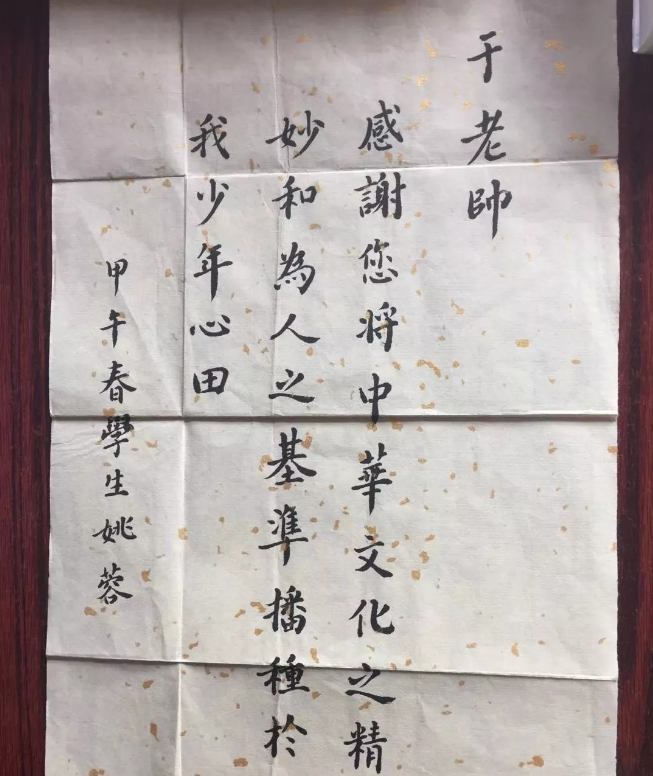 于老師
感謝您將中華文化之精
妙和為人之基準播種於
我少年心田
甲午春學生姚蓉